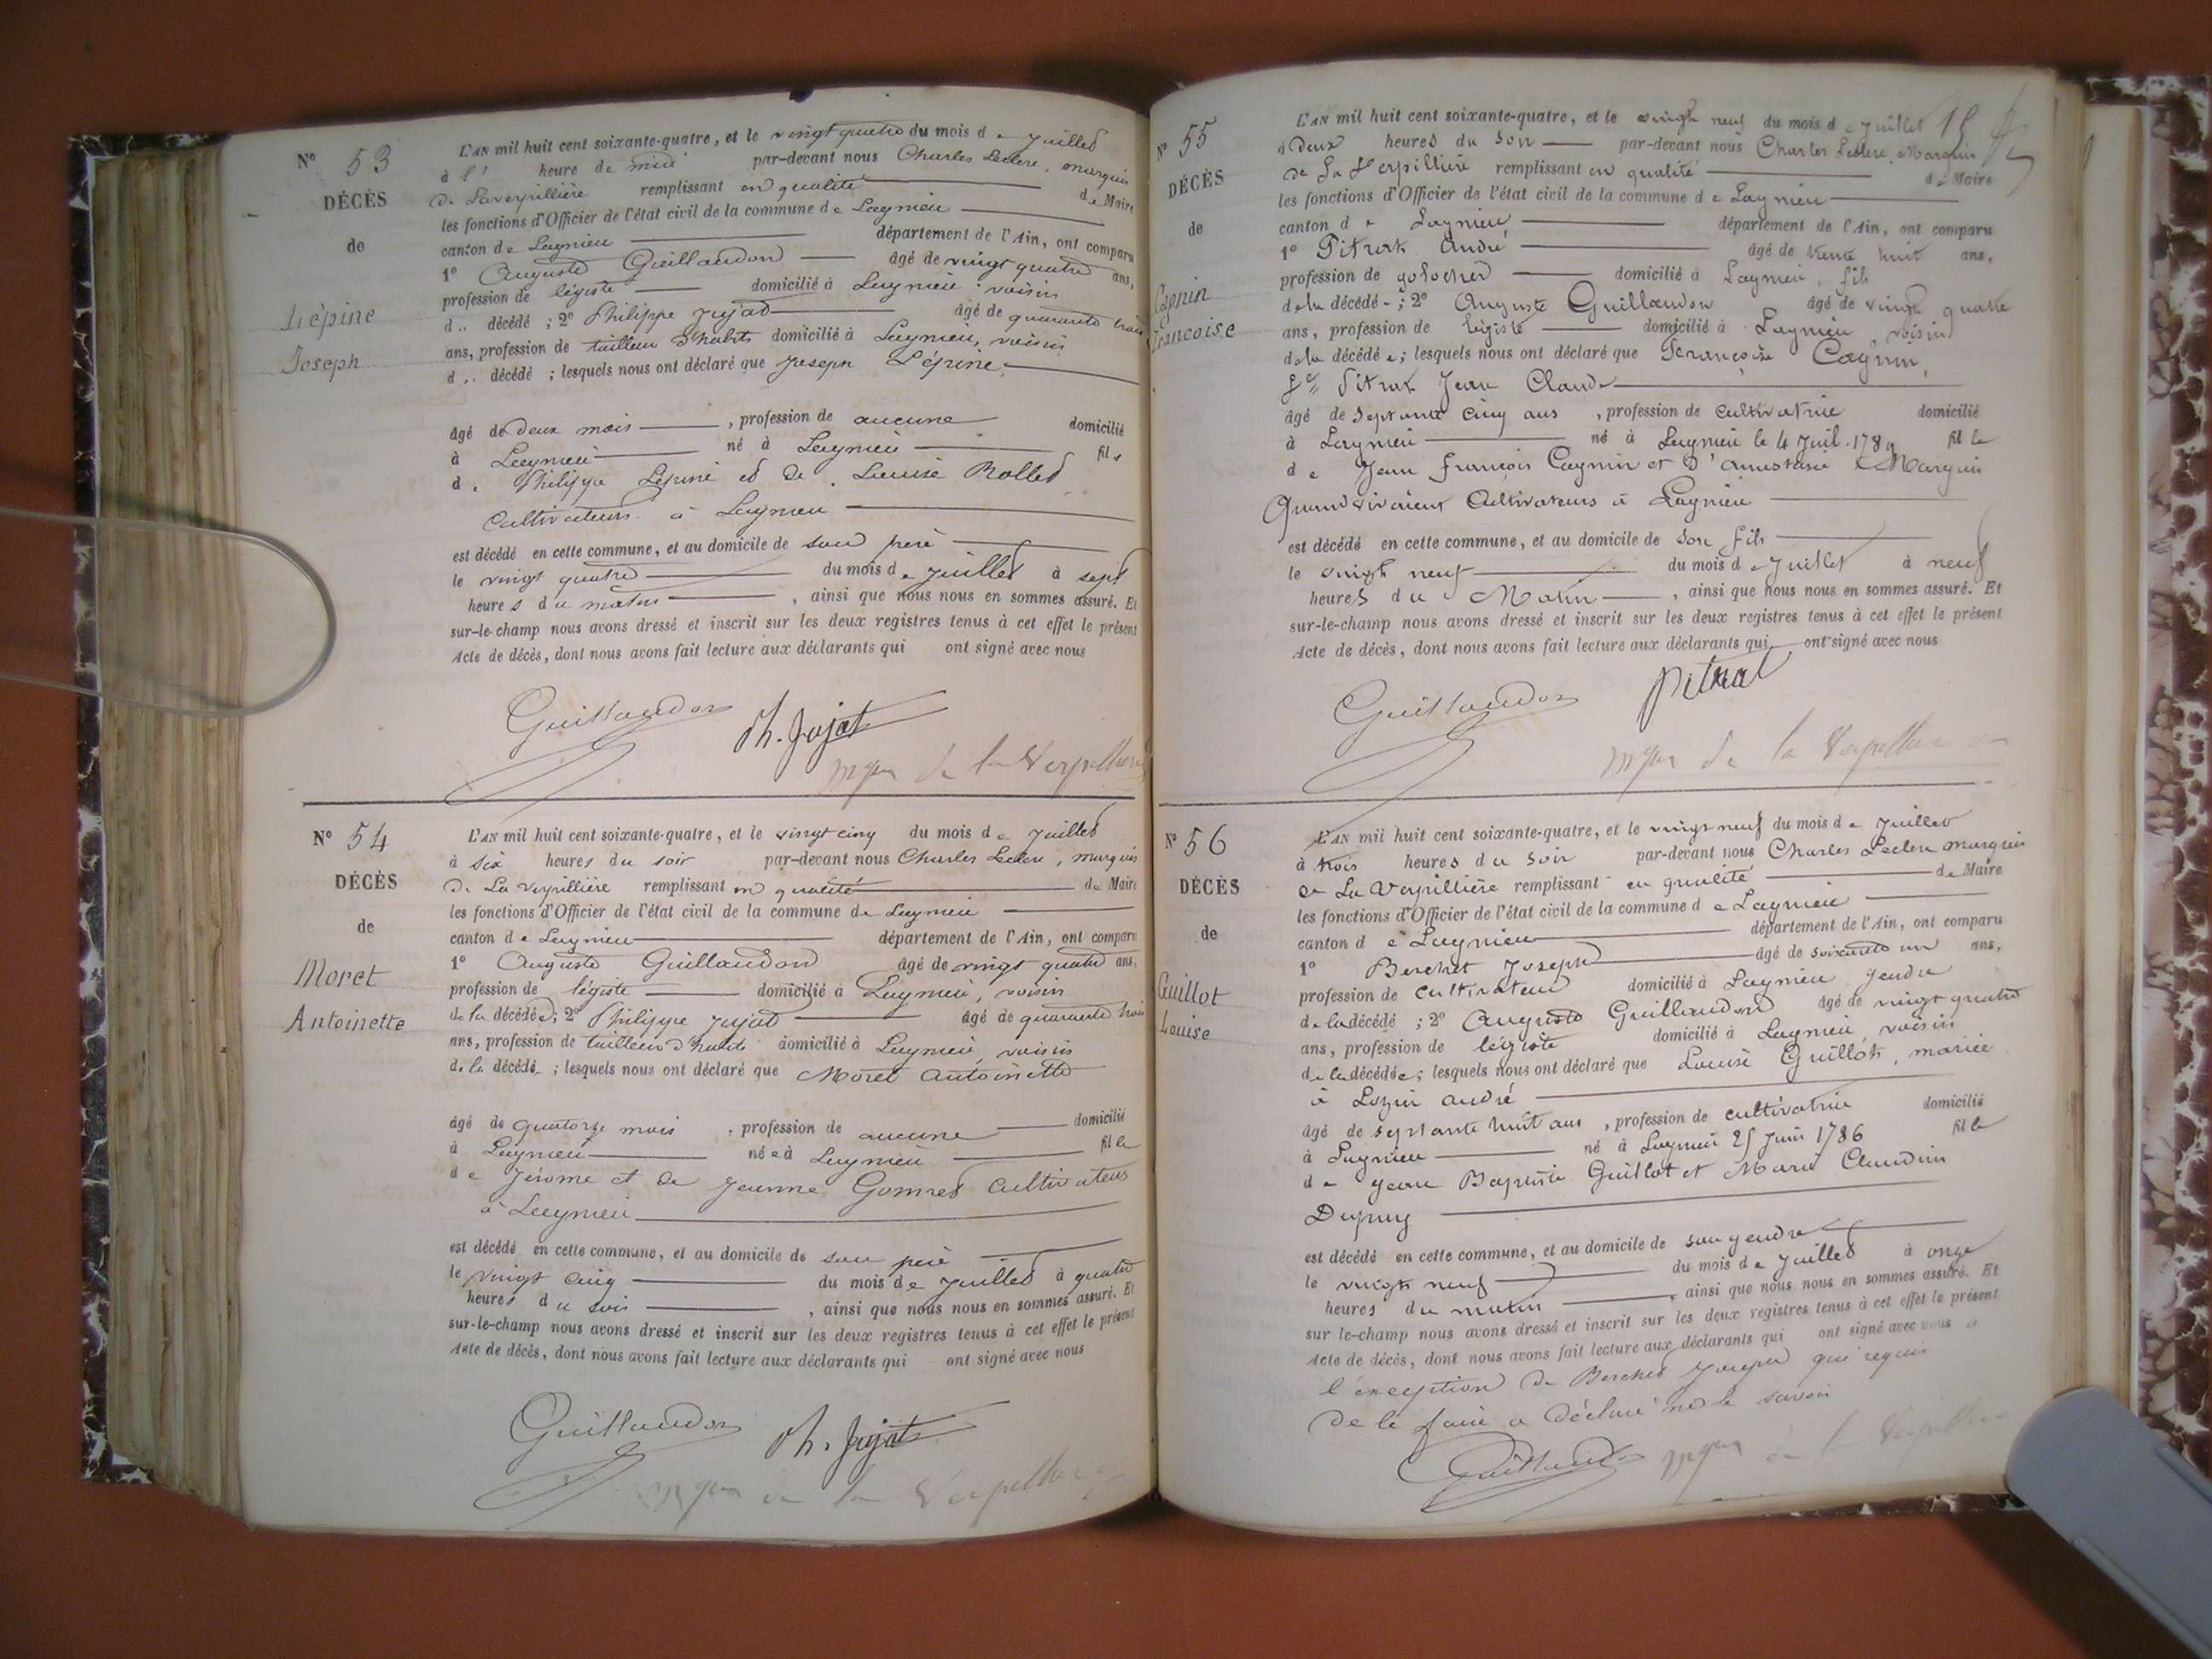 N° 53
DÉCÈS
de
Lépine
Joseph
L'AN mil huit cent soixante-quatre, et le vingt quatre du mois de Juillet
à l' heure de midi par-devant nous Charles Leclerc, marquis
de Laverpillière remplissant en qualité de Maire
les fonctions d'Officier de l'état civil de la commune de Lagnieu
canton de Lagnieu département de l'Ain, ont comparu
1° Auguste Guillaudon âgé de vingt quatre ans,
profession de légiste domicilié à Lagnieu voisin
d.. décédé ; 2° Philippe Jujat âgé de quarante trois
ans, profession de tailleur d'habits domicilié à Lagnieu, voisin
d.. décédé ; lesquels nous ont déclaré que Joseph Lépine
âgé de deux mois , profession de aucune domicilié
à Lagnieu né à Lagnieu fils
d. Philippe Lépine et de Louise Rollet
Cultivateurs à Lagnieu
est décédé en cette commune, et au domicile de son père
le vingt quatre du mois de Juillet à sept
heures du matin , ainsi que nous nous en sommes assuré. Et
sur-le-champ nous avons dressé et inscrit sur les deux registres tenus à cet effet le présent
Acte de décès, dont nous avons fait lecture aux déclarants qui ont signé avec nous
Guillaudon Ph. Jujat
de la Verpillière
N° 54
DÉCÈS
de
Moret
Antoinette
L'AN mil huit cent soixante-quatre, et le vingt cinq du mois de Juillet
à six heures du soir par-devant nous Charles Leclerc, marquis
de La verpillière remplissant en qualité de Maire
les fonctions d'Officier de l'état civil de la commune de Lagnieu
canton de Lagnieu département de l'Ain, ont comparu
1° Auguste Guillaudon âgé de vingt quatre ans,
profession de légiste domicilié à Lagnieu, voisin
de la décédée; 2° Philippe Jujat âgé de quarante trois
ans, profession de tailleur d'habits domicilié à Lagnieu, voisin
de la décédé ; lesquels nous ont déclaré que Moret Antoinette
âgé de quatorze mois , profession de aucune domicilié
à Lagnieu née à Lagnieu fille
de Jérome et de Jeanne Gonnet Cultivateurs
à Lagnieu
est décédé en cette commune, et au domicile de son père
le vingt cinq du mois de Juillet à quatre
heures du soir , ainsi que nous nous en sommes assuré. Et
sur-le-champ nous avons dressé et inscrit sur les deux registres tenus à cet effet le présent
Acte de décès, dont nous avons fait lecture aux déclarants qui ont signé avec nous
Guillaudon Ph. Jujat
de la Verpillière
N° 55
DÉCÈS
de
Cagnin
Francoise
L'AN mil huit cent soixante-quatre, et le vingt neuf du mois de Juillet 15
à Deux heures du soir par-devant nous Charles Leclerc, Marquis
de La Verpillière remplissant en qualité de Maire
les fonctions d'Officier de l'état civil de la commune de Lagnieu
canton de Lagnieu département de l'Ain, ont comparu
1° Pitrat André âgé de trente huit ans,
profession de galocher domicilié à Lagnieu, fils
de la décédé ; 2° Auguste Guillaudon âgé de vingt quatre
ans, profession de légiste domicilié à Lagnieu voisin
de la décédée; lesquels nous ont déclaré que Françoise Cagnin,
Pitrat Jean Claude
âgé de septante cinq ans , profession de cultivatrice domicilié
à Lagnieu né à Lagnieu le 4 Juil. 1789 fille
de Jean François Cagnin et D'anastasie Marquis
Quand vivaient Cultivateurs à Lagnieu
est décédé en cette commune, et au domicile de son fils
le vingt neuf du mois de Juillet à neuf
heures du Matin , ainsi que nous nous en sommes assuré. Et
sur-le-champ nous avons dressé et inscrit sur les deux registres tenus à cet effet le présent
Acte de décès, dont nous avons fait lecture aux déclarants qui ont signé avec nous
Guillaudon Pitrat
de la Verpillière
N° 56
DÉCÈS
de
Guillot
Louise
L'AN mil huit cent soixante-quatre, et le vingt neuf du mois de Juillet
à trois heures du soir par-devant nous Charles Leclerc marquis
de La Verpillière remplissant en qualité de Maire
les fonctions d'Officier de l'état civil de la commune de Lagnieu
canton de Lagnieu département de l'Ain, ont comparu
1° Berchet Joseph âgé de soixante un ans,
profession de cultivateur domicilié à Lagnieu gendre
de la décédé ; 2° Auguste Guillaudon âgé de vingt quatre
ans, profession de légiste domicilié à Lagnieu, voisin
de la décédée; lesquels nous ont déclaré que Louise Guillot, mariée
à Lozin andré
âgé de septante huit ans , profession de cultivatrice domicilié
à Lagnieu né à Lagnieu 25 Juin 1786 fille
de Jean Baptiste Guillot et Marie Claudine
Dupuy
est décédé en cette commune, et au domicile de son gendre
le vingt neuf du mois de Juillet à onze
heures du matin , ainsi que nous nous en sommes assuré. Et
sur le-champ nous avons dressé et inscrit sur les deux registres tenus à cet effet le présent
Acte de décès, dont nous avons fait lecture aux déclarants qui ont signé avec nous à
l'exception de Berchet Joseph qui requis
de le faire a déclaré ne le savoir
Guillaudon de la Verpillière